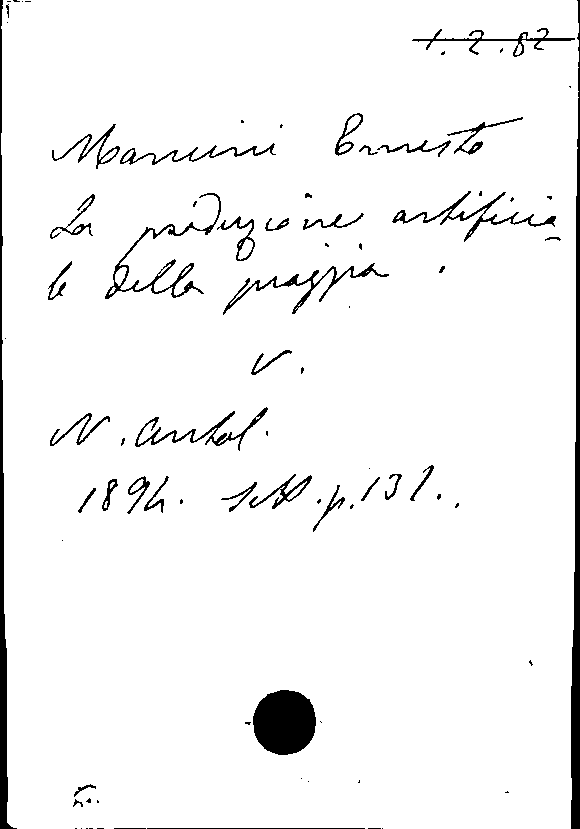 1.2.82
Mancini Ernesto
La produzione artificia-
le della pioggia.
V.
N. Antol.
1894. Sett. p. 131.